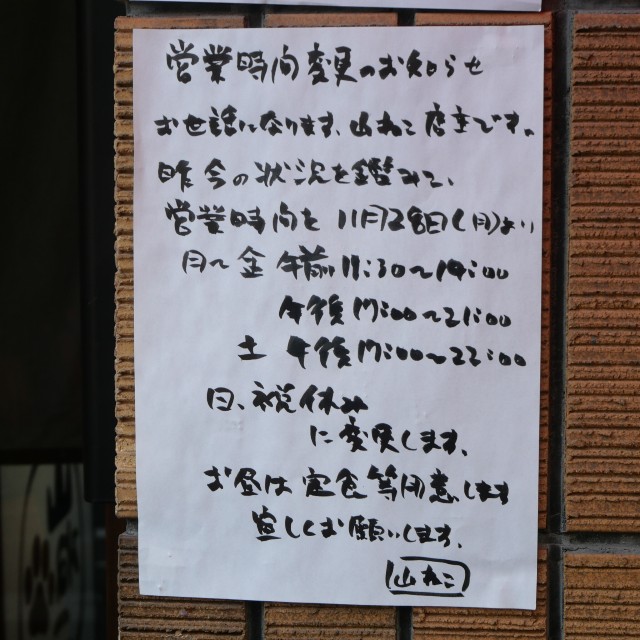 営業時間変更のお知らせ
お世話になります、山ねこ店主です。
昨今の状況を鑑みて、
営業時間を11月28日(月)より
月～金 午前11:30～14:00
午後17:00～21:00
土 午後17:00～22:00
日、祝休み
に変更します、
お昼は定食等用意します
宜しくお願いします、
山ねこ